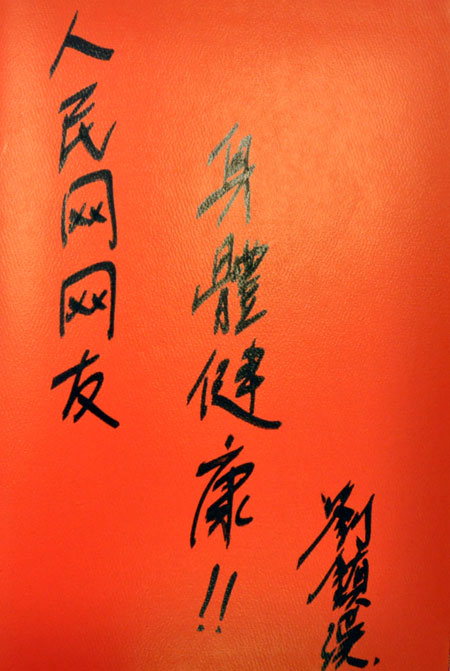 人民网网友
身體健康!!
劉鎮漢